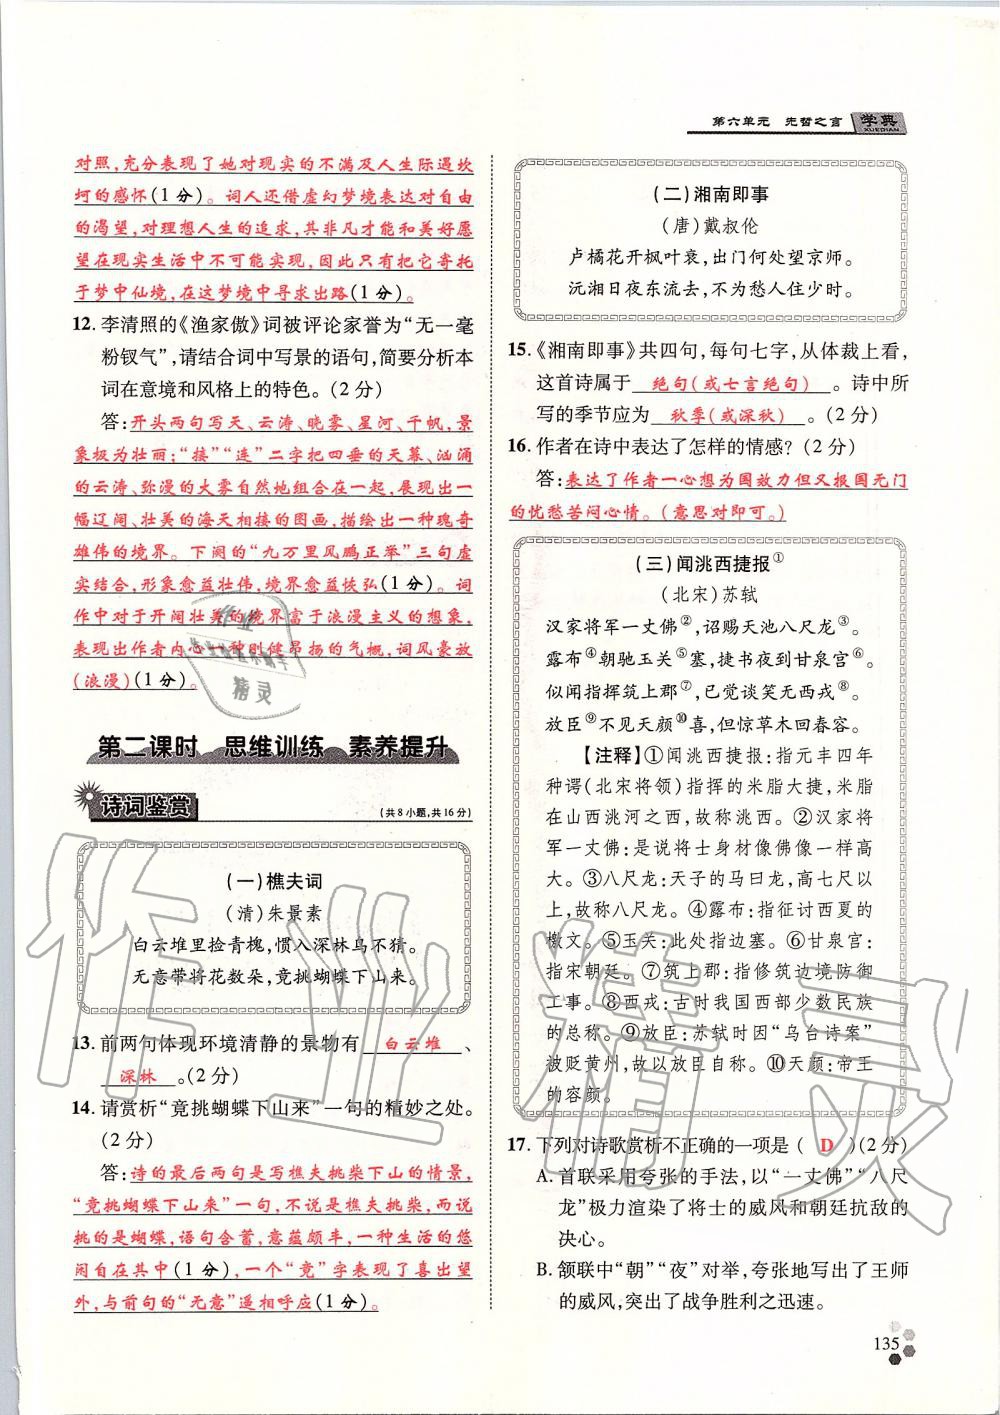 第六单元 先哲之言 学典
XUEDIAN
对照,充分表现了她对现实的不满及人生际遇坎
坷的感怀(1分)。词人还借虚幻梦境表达对自由
的渴望,对理想人生的追求,其非凡才能和美好愿
望在现实生活中不可能实现,因此只有把它寄托
于梦中仙境,在这梦境中寻求出路(1分)。
12. 李清照的《渔家傲》词被评论家誉为“无一毫
粉钗气”,请结合词中写景的语句,简要分析本
词在意境和风格上的特色。(2分)
答:开头两句写天、云涛、晓雾、星河、千帆,景
象极为壮丽;“接”“连”二字把四垂的天幕、汹涌
的云涛、弥漫的大雾自然地组合在一起,展现出一
幅辽阔、壮美的海天相接的图画,描绘出一种瑰奇
雄伟的境界。下阕的“九万里风鹏正举”三句虚
实结合,形象愈益壮伟,境界愈益恢弘(1分)。词
作中对于开阔壮美的境界富于浪漫主义的想象,
表现出作者内心一种刚健昂扬的气概,词风豪放
(浪漫)(1分)。
第二课时 思维训练 素养提升
诗词鉴赏 (共8小题,共16分)
(一)樵夫词
(清)朱景素
白云堆里捡青槐,惯入深林鸟不猜。
无意带将花数朵,竟挑蝴蝶下山来。
13. 前两句体现环境清静的景物有 白云堆 、
深林 。(2分)
14. 请赏析“竟挑蝴蝶下山来”一句的精妙之处。
(2分)
答:诗的最后两句是写樵夫挑柴下山的情景,
“竟挑蝴蝶下山来”一句,不说是樵夫挑柴,而说
挑的是蝴蝶,语句含蓄,意蕴颇丰,一种生活的悠
闲自在其中(1分),一个“竟”字表现了喜出望
外,与前句的“无意”遥相呼应(1分)。
(二)湘南即事
(唐)戴叔伦
卢橘花开枫叶衰,出门何处望京师。
沅湘日夜东流去,不为愁人住少时。
15. 《湘南即事》共四句,每句七字,从体裁上看,
这首诗属于 绝句(或七言绝句) 。诗中所
写的季节应为 秋季(或深秋) 。(2分)
16. 作者在诗中表达了怎样的情感?(2分)
答:表达了作者一心想为国效力但又报国无门
的忧愁苦闷心情。(意思对即可。)
(三)闻洮西捷报①
(北宋)苏轼
汉家将军一丈佛②,诏赐天池八尺龙③。
露布④朝驰玉关⑤塞,捷书夜到甘泉宫⑥。
似闻指挥筑上郡⑦,已觉谈笑无西戎⑧。
放臣⑨不见天颜⑩喜,但惊草木回春容。
【注释】①闻洮西捷报:指元丰四年
种谔(北宋将领)指挥的米脂大捷,米脂
在山西洮河之西,故称洮西。②汉家将
军一丈佛:是说将士身材像佛像一样高
大。③八尺龙:天子的马曰龙,高七尺以
上,故称八尺龙。④露布:指征讨西夏的
檄文。⑤玉关:此处指边塞。⑥甘泉宫:
指宋朝廷。⑦筑上郡:指修筑边境防御
工事。⑧西戎:古时我国西部少数民族
的总称。⑨放臣:苏轼时因“乌台诗案”
被贬黄州,故以放臣自称。⑩天颜:帝王
的容颜。
17. 下列对诗歌赏析不正确的一项是( D )(2分)
A. 首联采用夸张的手法,以“一丈佛”“八尺
龙”极力渲染了将士的威风和朝廷抗敌的
决心。
B. 颔联中“朝”“夜”对举,夸张地写出了王师
的威风,突出了战争胜利之迅速。
135
作业精灵